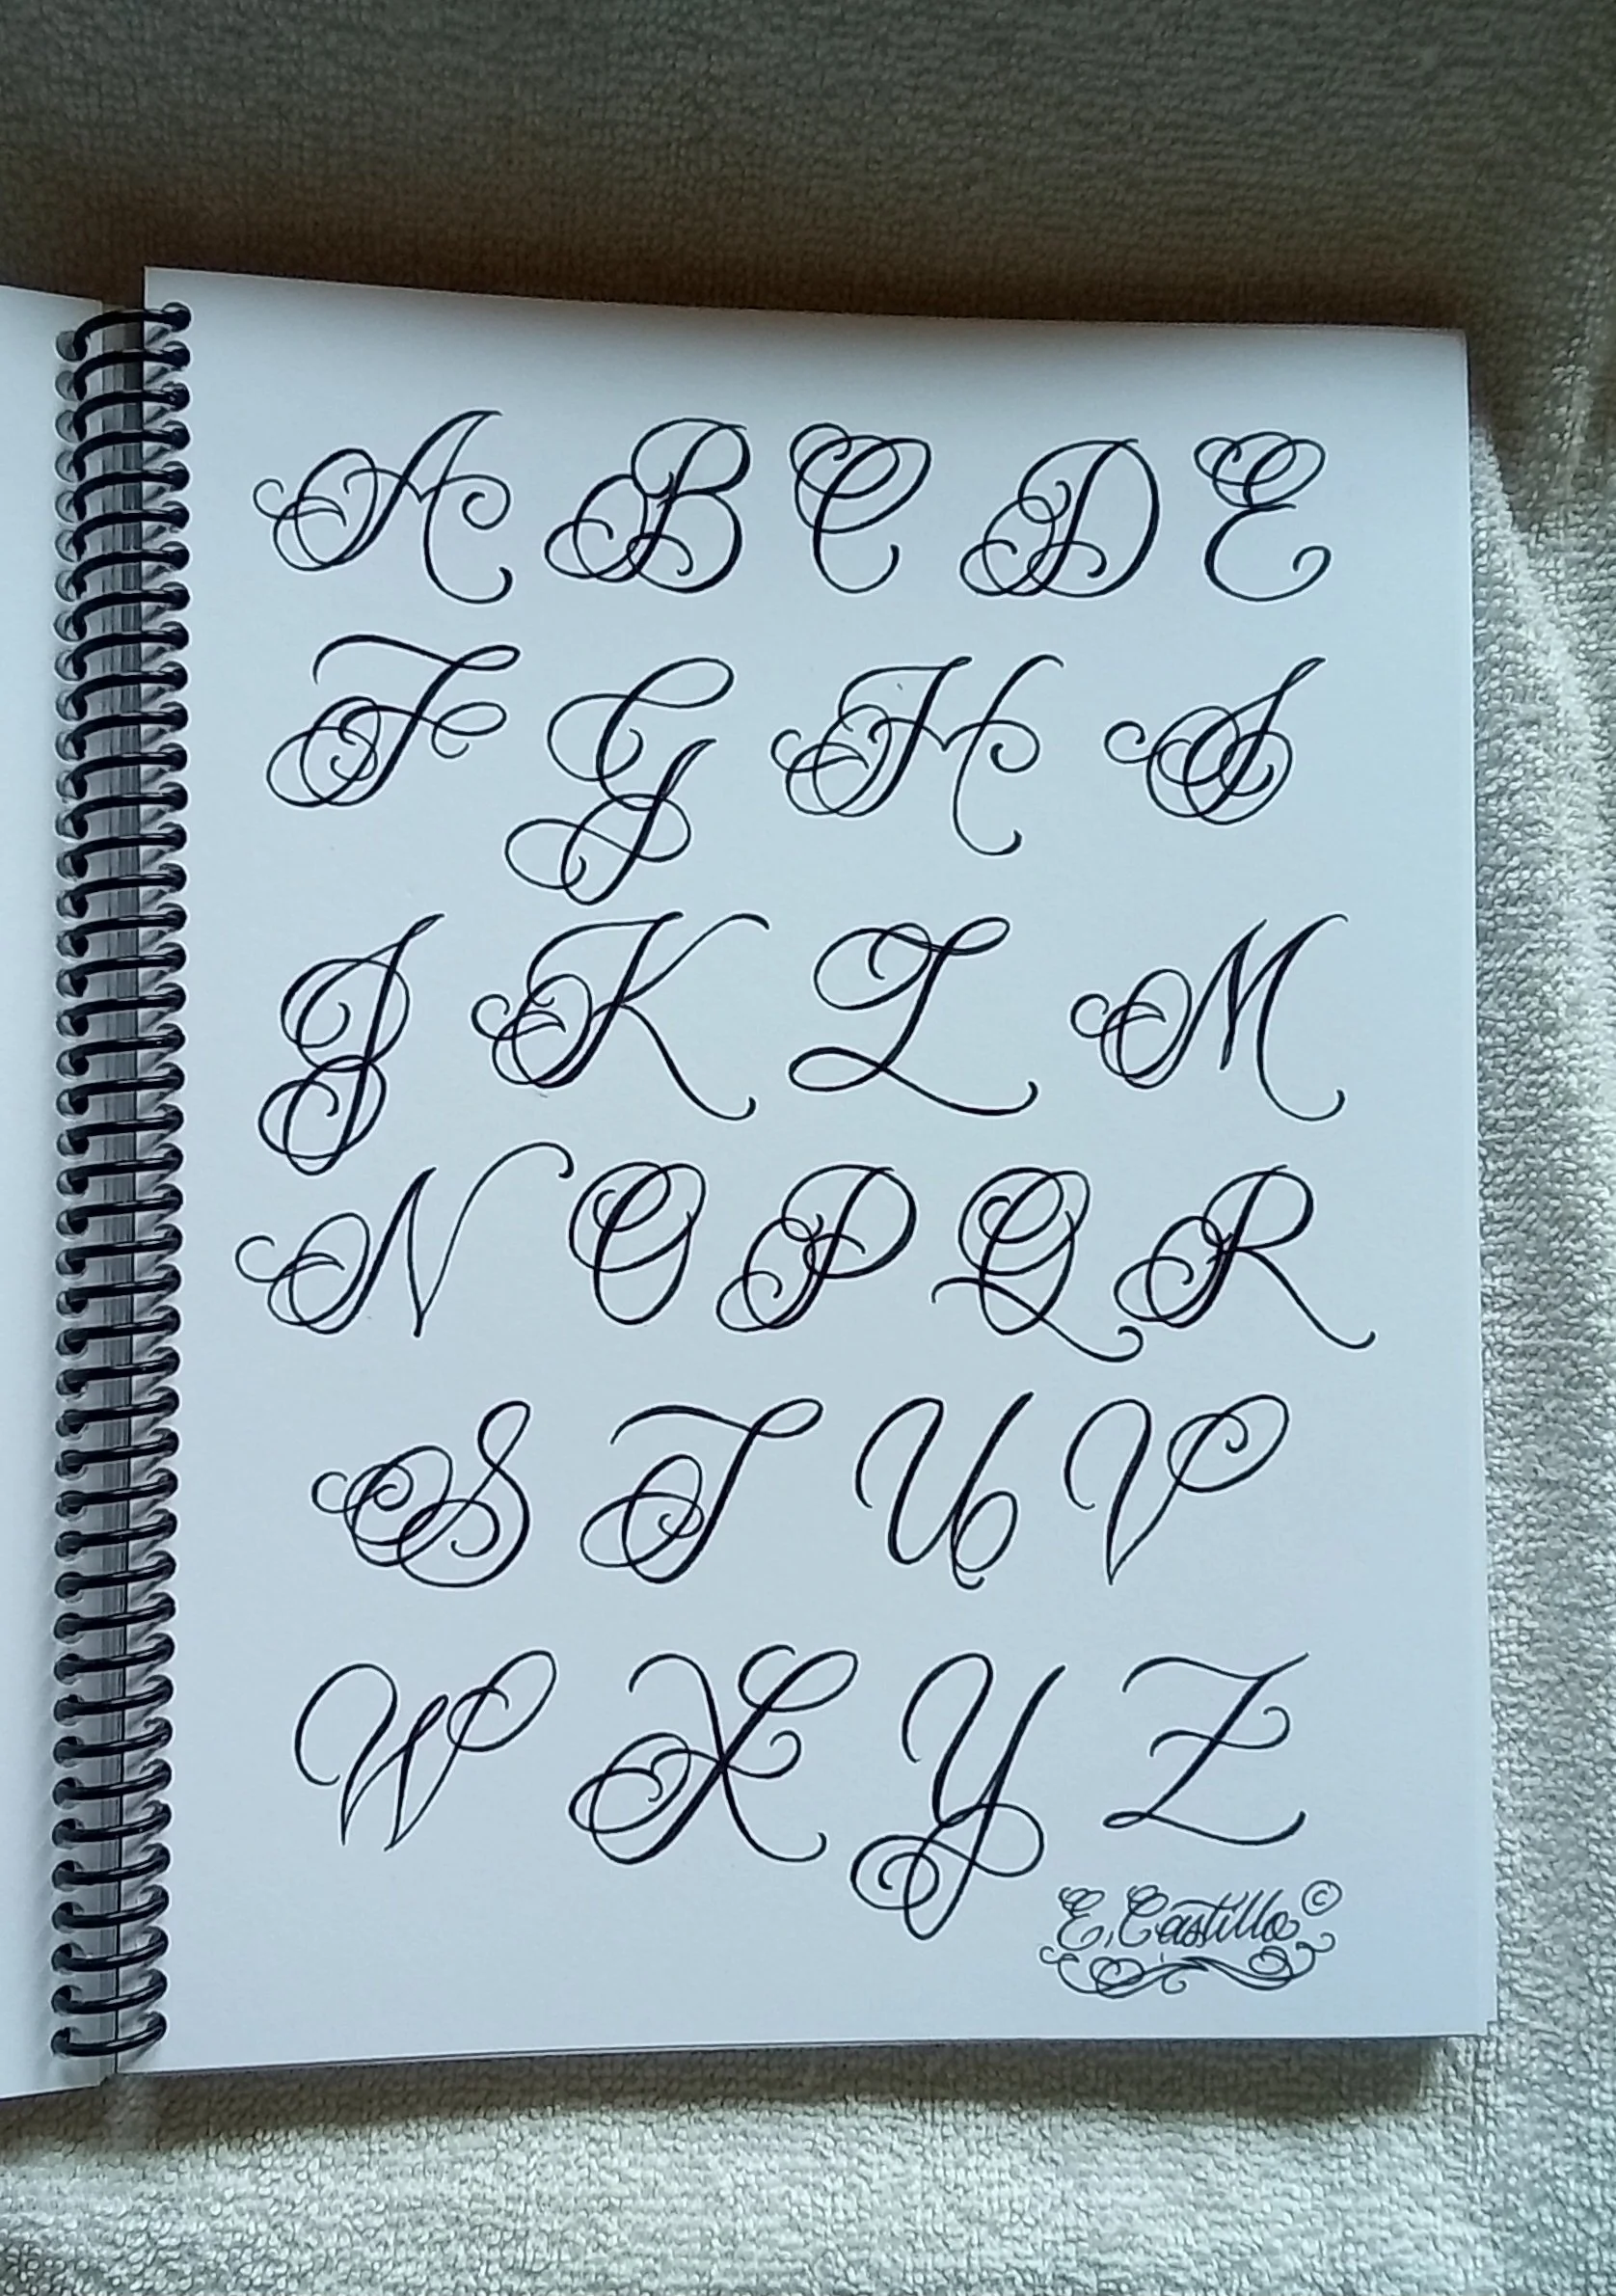 A B C D E
F G H I
J K L M
N O P Q R
S T U V
W X Y Z
E. Castillo ©